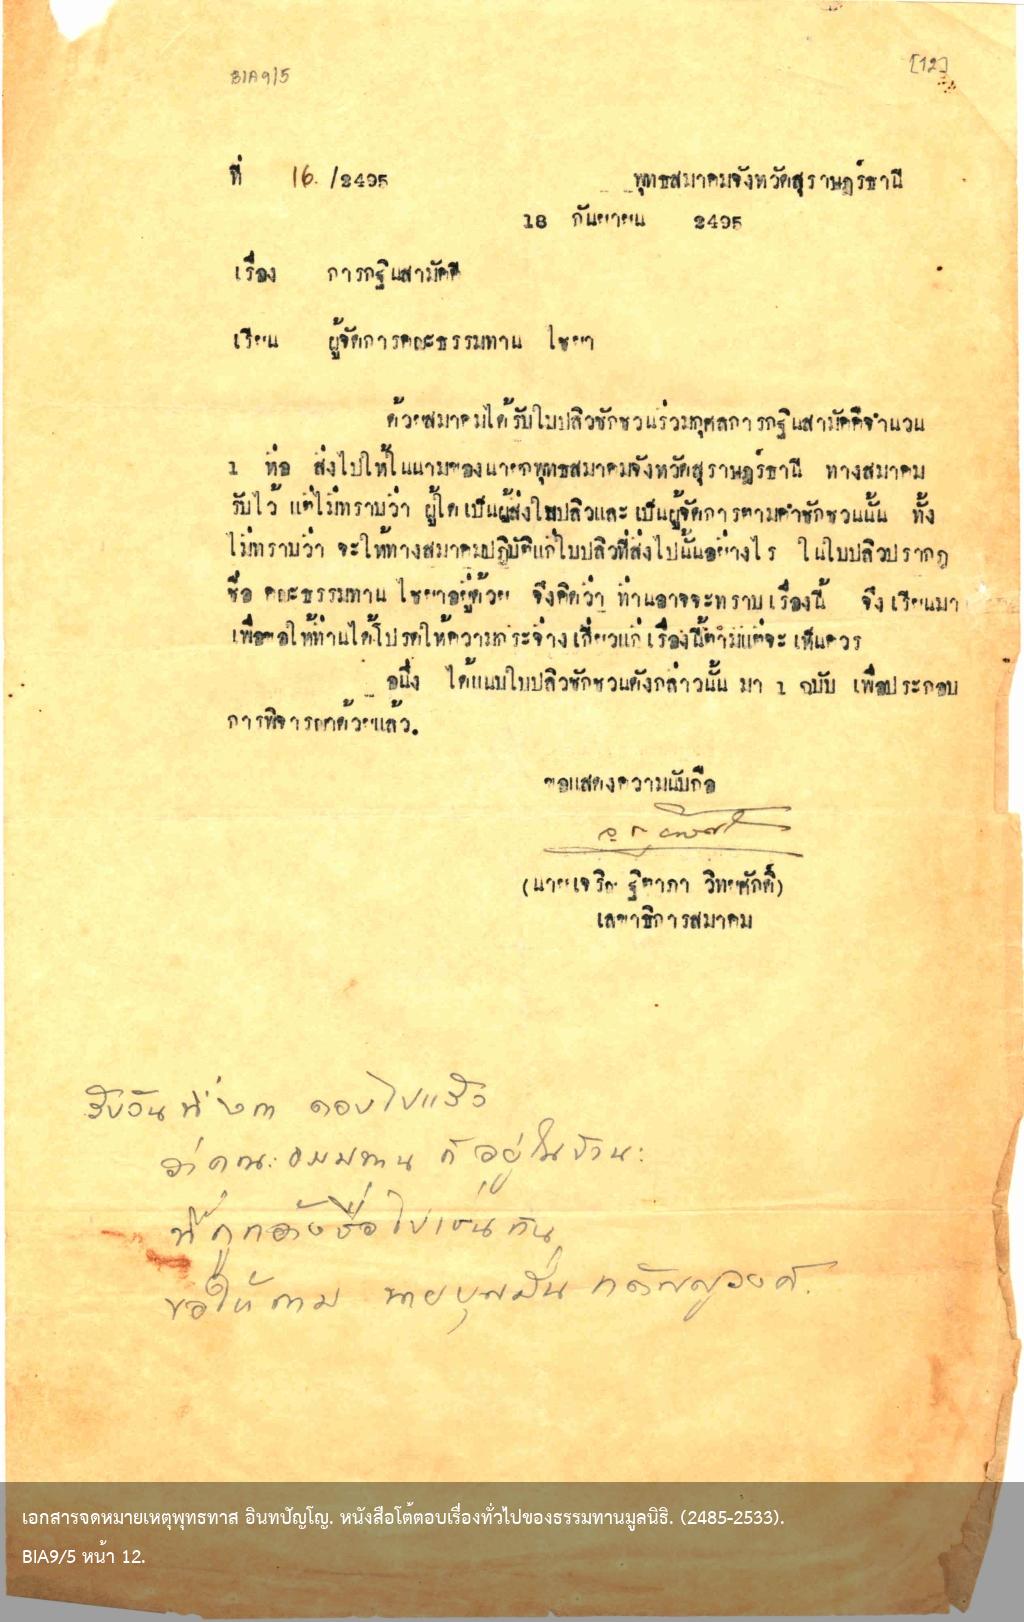 BIA9/5
[12]
ที่ 16. /2495
พุทธสมาคมจังหวัดสุราษฎร์ธานี
18 กันยายน 2495
เรื่อง การกฐินสามัคคี
เรียน ผู้จัดการคณะธรรมทาน ไชยา
ด้วยสมาคมได้รับใบปลิวชักชวนร่วมกุศลการกฐินสามัคคีจำนวน
1 ห่อ ส่งไปให้ในนามของนายกพุทธสมาคมจังหวัดสุราษฎร์ธานี ทางสมาคม
รับไว้ แต่ไม่ทราบว่า ผู้ใดเป็นผู้ส่งใบปลิวและเป็นผู้จัดการตามคำชักชวนนั้น ทั้ง
ไม่ทราบว่า จะให้ทางสมาคมปฏิบัติแก่ใบปลิวที่ส่งไปนั้นอย่างไร ในใบปลิวปรากฏ
ชื่อ คณะธรรมทาน ไชยาอยู่ด้วย จึงคิดว่า ท่านอาจจะทราบเรื่องนี้ จึงเรียนมา
เพื่อขอให้ท่านได้โปรดให้ความกระจ่างเกี่ยวแก่เรื่องนี้ตามแต่จะเห็นควร
อนึ่ง ได้แนบใบปลิวชักชวนดังกล่าวนั้น มา 1 ฉบับ เพื่อประกอบ
การพิจารณาด้วยแล้ว.
ขอแสดงความนับถือ
(นายเจริญ ฐิตาภา วิทยศักดิ์)
เลขาธิการสมาคม
รับวันที่ ๒๓ ตอบไปแล้ว
ว่าคณะธรรมทาน ก็อยู่ในฐานะ
ที่ถูกอ้างชื่อไปเช่นกัน
ขอให้ถาม นายบุญมั่น กตัญญูวงศ์.
เอกสารจดหมายเหตุพุทธทาส อินทปัญโญ. หนังสือโต้ตอบเรื่องทั่วไปของธรรมทานมูลนิธิ. (2485-2533).
BIA9/5 หน้า 12.